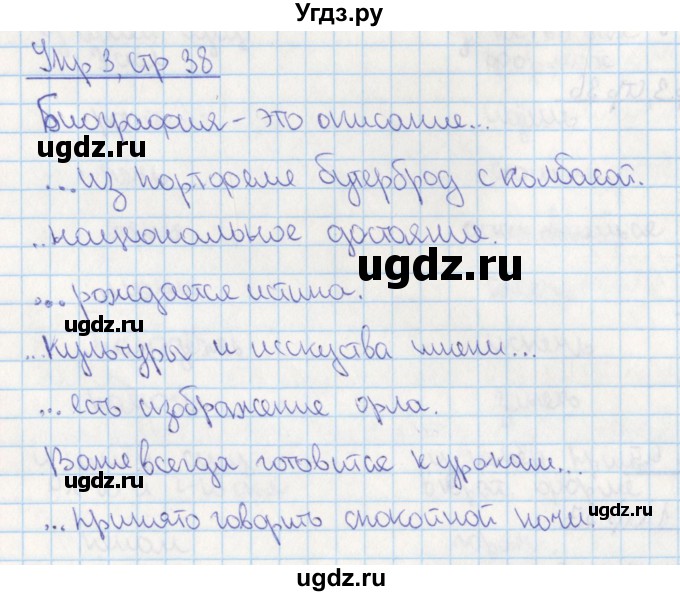 Угдз.ру
Упр 3, стр 38
Биография - это описание...
ugdz.ru
...из портфеля бутерброд с колбасой.
ugdz.ru
..национальное достояние.
ugdz.ru
ugdz.ru
... рождается истина.
ugdz.ru
...культуры и исскуства имени...
ugdz.ru
... есть изображение орла.
ugdz.ru
Ваня всегда готовится к урокам...
ugdz.ru
... принято говорить спокойной ночи.
ugdz.ru
ugdz.ru
ugdz.ru